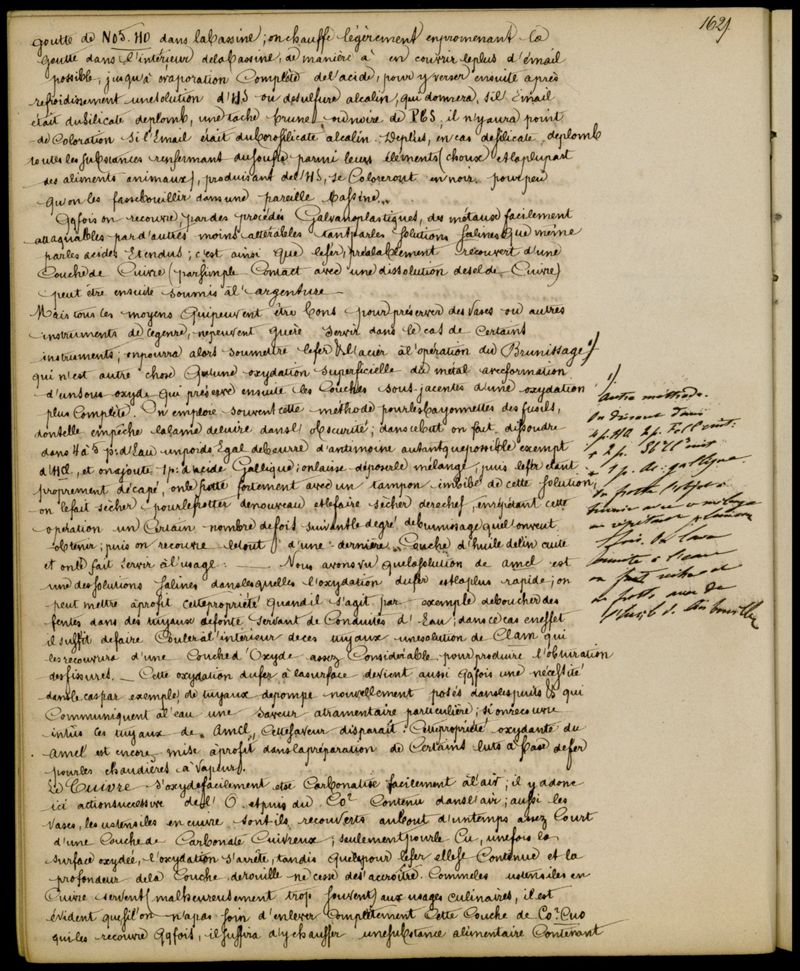 162
goutte de NO5.HO dans la Cassine; on chauffe légèrement en promenant la
goutte dans l'intérieur de la Cassine, de manière à en couvrir le plus d'émail
possible, jusqu'à évaporation Complète de l'acide, pour y verser ensuite après
refroidissement une solution d'HS ou de sulfure alcalin, qui donnera, si l'Email
était du Silicate de plomb, une tache brune ou noire de PbS; il n'y aura point
de Coloration si l'Email était du borosilicate alcalin. De plus, en cas de silicate de plomb
toutes les substances renfermant du soufre parmi leurs éléments (choux et la plupart
des aliments animaux), produisant de l'HS, se Coloreront en noir pour peu
qu'on les fasse bouillir dans une pareille Cassine.
Qqfois on recouvre, par des procédés Galvanoplastiques, des métaux facilement
attaquables par d'autres moins altérables tant par les solutions salines que même
par les acides Etendus; c'est ainsi que le fer, préalablement recouvert d'une
Couche de Cuivre (par simple Contact avec une dissolution de sel de Cuivre)
peut être ensuite soumis à l'argenture
Mais tous les moyens qui peuvent être bons pour préserver des vases ou autres
instruments de ce genre, ne peuvent guère servir dans le cas de Certains
instruments; on pourra alors soumettre le fer & l'acier à l'opération du Brunissage 1)
qui n'est autre chose qu'une oxydation superficielle du métal avec formation
d'un sous oxyde qui préserve ensuite les Couches sous-jacentes d'une oxydation
plus Complète. On emploie souvent cette méthode pour les bayonnettes des fusils,
dont elle empêche la lame de luire dans l'obscurité; dans ce but on fait dissoudre
dans 4 à 5 p: d'Eau un poids Egal de beurre d'antimoine autant que possible exempt
d'HCl, et on ajoute 1 p: d'acide Gallique; on laisse déposer le mélange, puis le fer étant
proprement décapé, on le frotte fortement avec un tampon imbibé de cette solution,
on le fait sécher pour le frotter de nouveau et le faire sécher derechef, en répétant cette
opération un Certain nombre de fois suivant le degré de brunissage qu'on veut
obtenir; puis on recouvre le tout d'une dernière Couche d'huile de lin cuite
et on le fait servir à l'usage. Nous avons vu que la solution de amcl est
une des solutions salines dans lesquelles l'oxydation du fer est la plus rapide; on
peut mettre à profit cette propriété quand il s'agit par exemple de boucher des
fentes dans des tuyaux de fonte servant de Conduites d'Eau; dans ce cas en effet
il suffit de faire Couler à l'intérieur de ces tuyaux une solution de Clam qui
les recouvrira d'une Couche d'Oxyde assez Considérable pour produire l'obturation
des fissures. Cette oxydation du fer à la surface devient aussi Qqfois une nécessité
dans le cas par exemple, de tuyaux de pompe nouvellement posés dans les puits & qui
Communiquent à l'eau une saveur atramentaire particulière; si on recouvre
intùs ces tuyaux de Amcl, Cette saveur disparaît. Cette propriété oxydante du
Amcl est encore mise à profit dans la préparation de Certains luts à base de fer
pour les chaudières à vapeur.
Cuivre s'oxyde facilement et se Carbonatise facilement à l'air; il y a donc
ici action successive de l'O et puis du Co2 Contenu dans l'air; aussi les
vases, les ustensiles en cuivre sont-ils recouverts au bout d'un temps assez Court
d'une Couche de Carbonate Cuivreux; seulement pour le Cu, une fois la
surface oxydée, l'oxydation s'arrête, tandis que pour le fer elle se Continue et la
profondeur de la Couche de rouille ne cesse de s'accroître. Comme les ustensiles en
Cuivre servent (malheureusement trop souvent) aux usages culinaires, il est
évident que si l'on n'a pas soin d'enlever Complètement Cette Couche de Co2.CuO
qui les recouvre Qqfois, il suffira d'y chauffer une substance alimentaire Contenant
1)
Autre méthode.
On dissout dans
4 p. HO 2 p.
+ 2 p.
+ 1 p. Ac. gallique
On frotte
fois. On lave
ensuite à l'eau
on fait sécher et
on frotte avec de
l'huile de lin bouillie